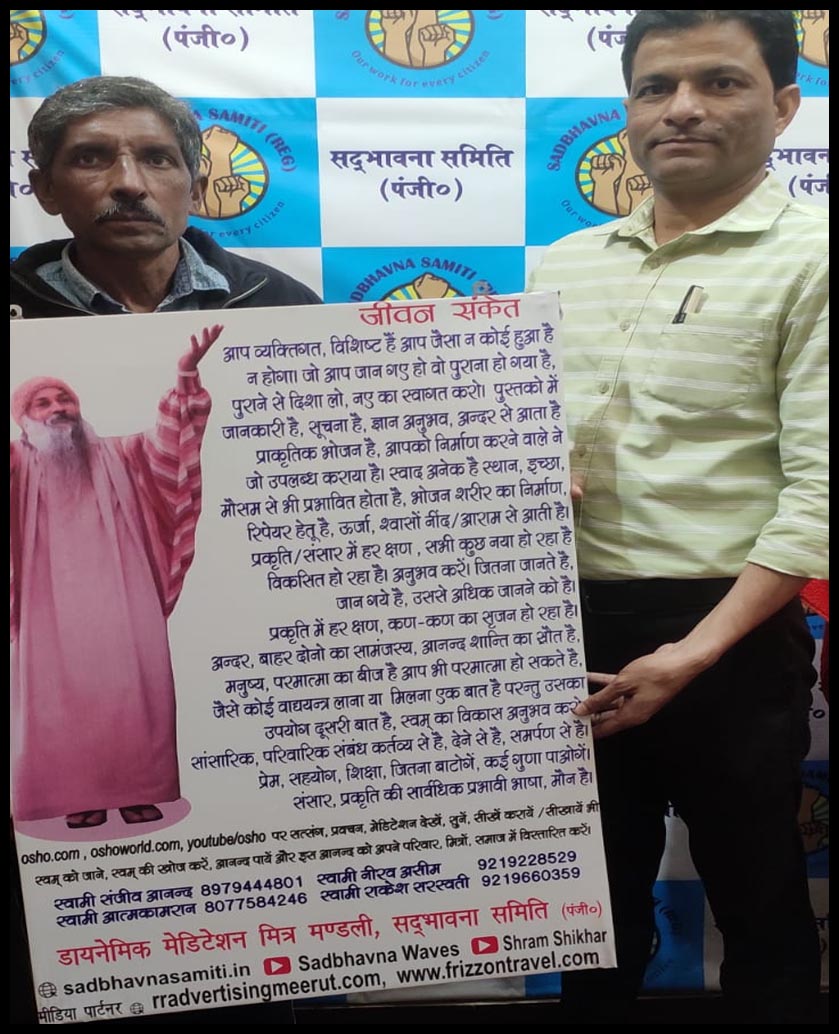 सद्भावना समिति
(पंजी०)
Our work for every citizen
(पंजी०)
Our work for every citizen
SADBHAVNA SAMITI (REG)
for every citizen
सद्‌भावना समिति
(पंजी०)
SADBHAVNA SAMITI (REG)
SADBHAVNA SAMITI (REG)
जीवन संकेत
आप व्यक्तिगत, विशिष्ट हैं आप जैसा न कोई हुआ है
न होगा। जो आप जान गए हो वो पुराना हो गया है,
पुराने से दिशा लो, नए का स्वागत करो। पुस्तको में
जानकारी है, सूचना है, ज्ञान अनुभव, अन्दर से आता है
प्राकृतिक भोजन है, आपको निर्माण करने वाले ने
जो उपलब्ध कराया है। स्वाद अनेक है स्थान, इच्छा,
मौसम से भी प्रभावित होता है, भोजन शरीर का निर्माण,
रिपेयर हेतू है, ऊर्जा, श्वासों नींद/आराम से आती है।
प्रकृति/संसार में हर क्षण , सभी कुछ नया हो रहा है
विकसित हो रहा है। अनुभव करें। जितना जानते है,
जान गये है, उससे अधिक जानने को है।
प्रकृति में हर क्षण, कण-कण का सृजन हो रहा है।
अन्दर, बाहर दोनो का सामंजस्य, आनन्द शान्ति का स्रौत है,
मनुष्य, परमात्मा का बीज है आप भी परमात्मा हो सकते है,
जैसे कोई वाद्ययन्त्र लाना या मिलना एक बात है परन्तु उसका
उपयोग दूसरी बात है, स्वम् का विकास अनुभव करो
सांसारिक, परिवारिक संबंध कर्तव्य से है, देने से है, समर्पण से है।
प्रेम, सहयोग, शिक्षा, जितना बाटोगें, कई गुणा पाओगें।
संसार, प्रकृति की सार्वधिक प्रभावी भाषा, मौन है।
osho.com , oshoworld.com, youtube/osho पर सत्संग, प्रवचन, मेडिटेशन देखें, सुनें, सीखें करायें /सीखायें भी
स्वम् को जाने, स्वम् की खोज करें, आनन्द पायें और इस आनन्द को अपने परिवार, मित्रों, समाज में विस्तारित करें।
स्वामी संजीव आनन्द 8979444801 स्वामी नीरव असीम 9219228529
स्वामी आत्मकामरान 8077584246 स्वामी राकेश सरस्वती 9219660359
डायनेमिक मेडिटेशन मित्र मण्डली, सद्‌भावना समिति (पंजी०)
sadbhavnasamiti.in Sadbhavna Waves Shram Shikhar
मीडिया पार्टनर rradvertisingmeerut.com, www.frizzontravel.com